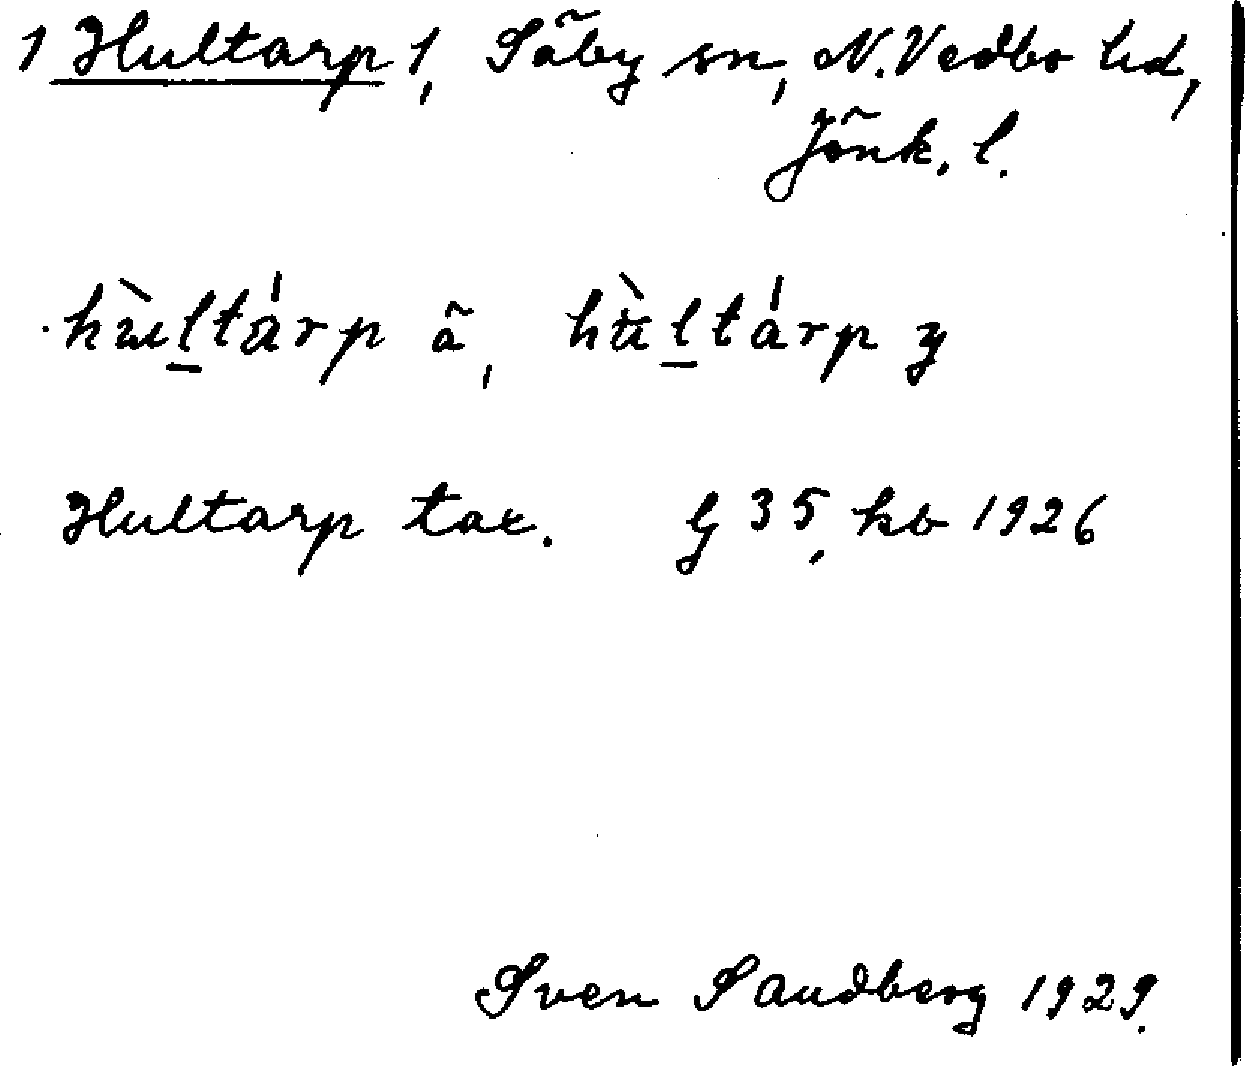 1 Hultarp 1, Säby sn, N. Vedbo hd,
Jönk. l.
hùltárp ä, hùltárp y
Hultarp tax. G 35, kb 1926
Sven Sandberg 1929.